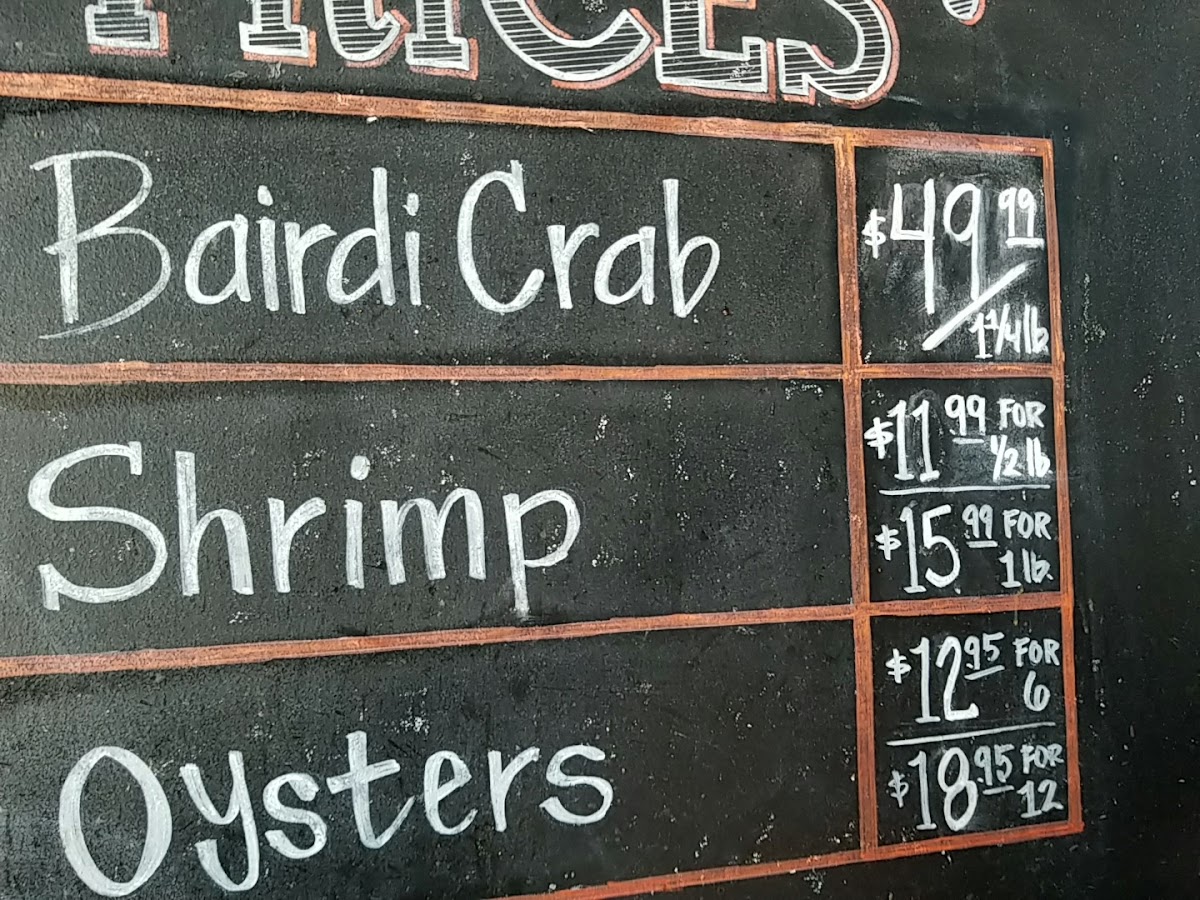 PRICES
Bairdi Crab
$49 99/1 1/4 lb
Shrimp
$11 99 FOR
1/2 lb
$15 99 FOR
1 lb.
Oysters
$12 95 FOR
6
$18 95 FOR
12